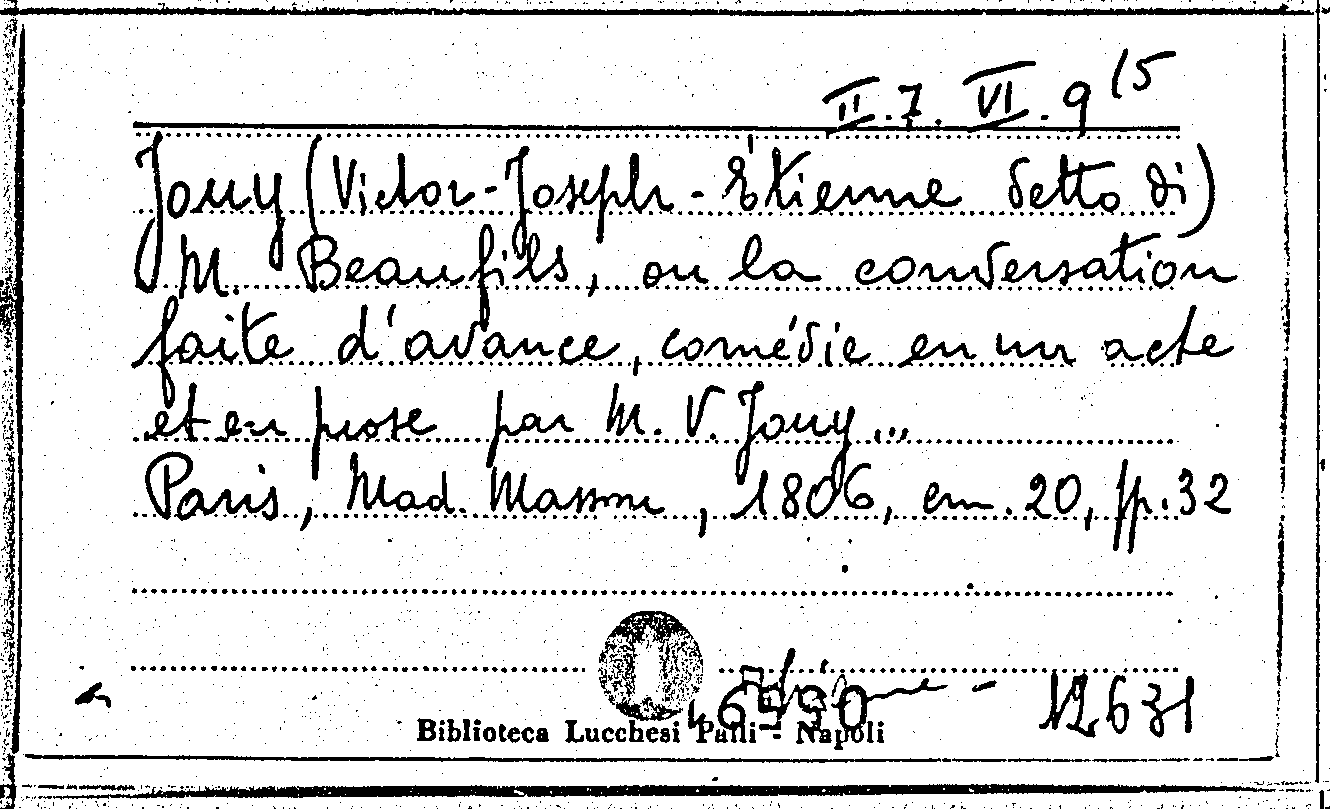 II.7.VI.9 15
Jouy (Victor-Joseph-Étienne detto di)
M. Beaufils, ou la conversation
faite d'avance, comédie en un acte
et en prose par M. V. Jouy...
Paris, Mad. Masson, 1806, cm. 20, pp. 32
12631
Biblioteca Lucchesi Palli - Napoli